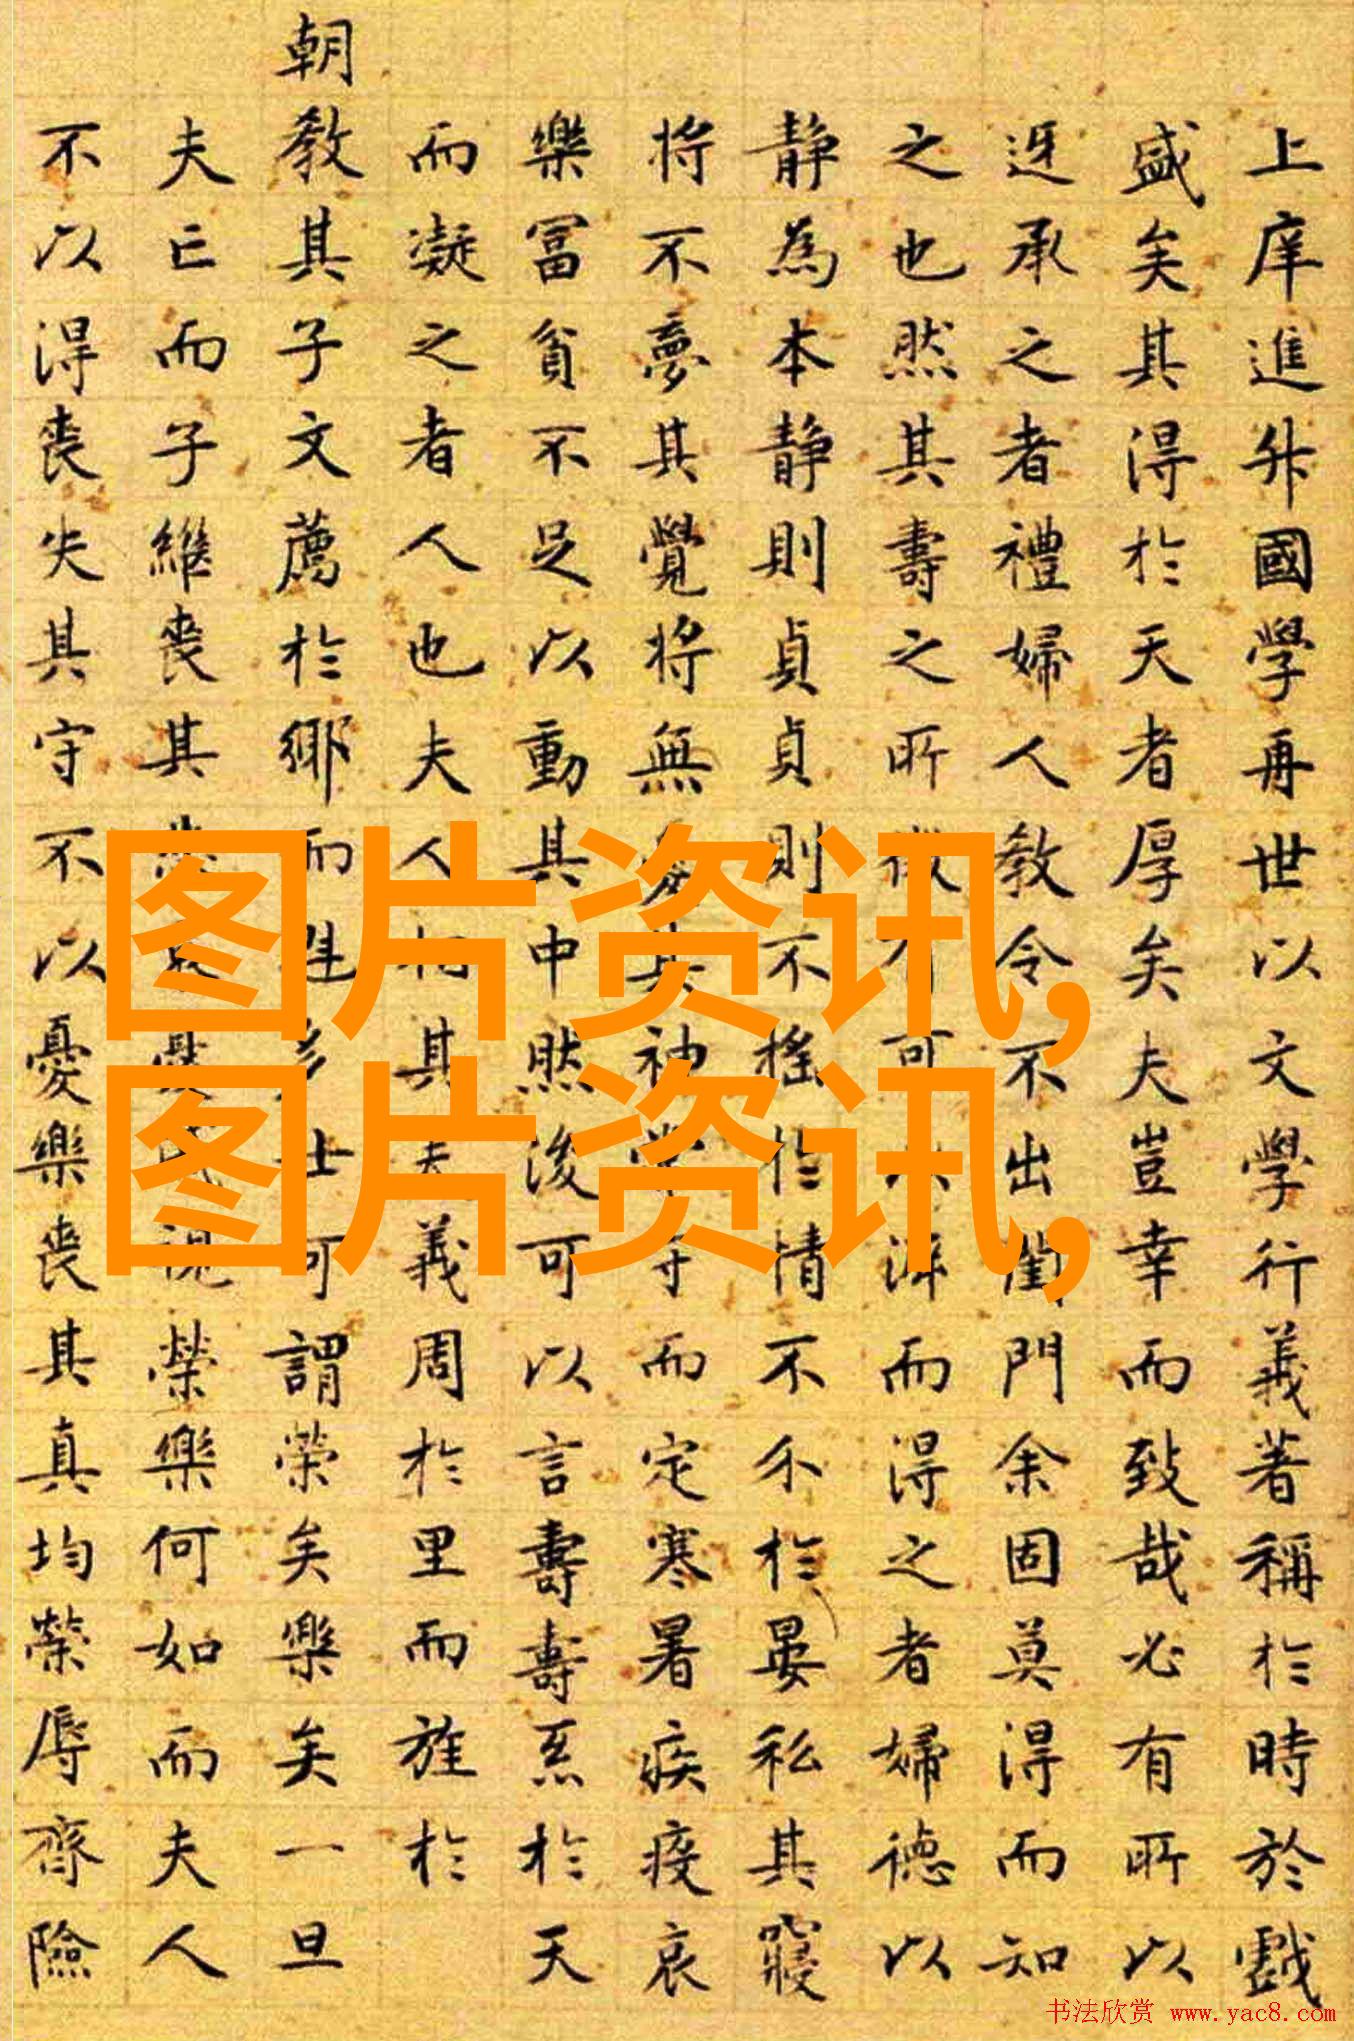 上庠進升國學再世以文學行義著稱於時於戲
盛矣其得於天者厚矣夫豈幸而致哉必有所以
迓承之者禮婦人教令不出閨門余固莫得而知
之也然其壽之所徵有可得而得之者婦德以
靜為本靜則貞貞則不搖於情不介於晏私其寢
將不夢其覺將無其神守而定寒暑疾疫哀
樂富貧不足以動其中然後可以言壽壽系於天
而凝之者人也夫人相其夫義周於里而旌於
朝教其子文薦於鄉而士可謂榮矣樂矣一旦
夫亡而子繼喪其榮樂何如而夫人
不以得喪失其守不以憂樂喪其真均榮辱齊險
图片资讯,
图片资讯,
书法欣赏 www.yac8.com